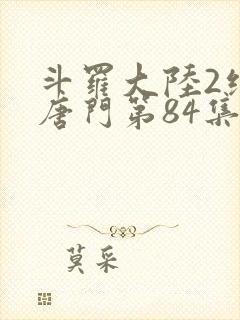 斗羅大陸2
唐門第84集
莫采